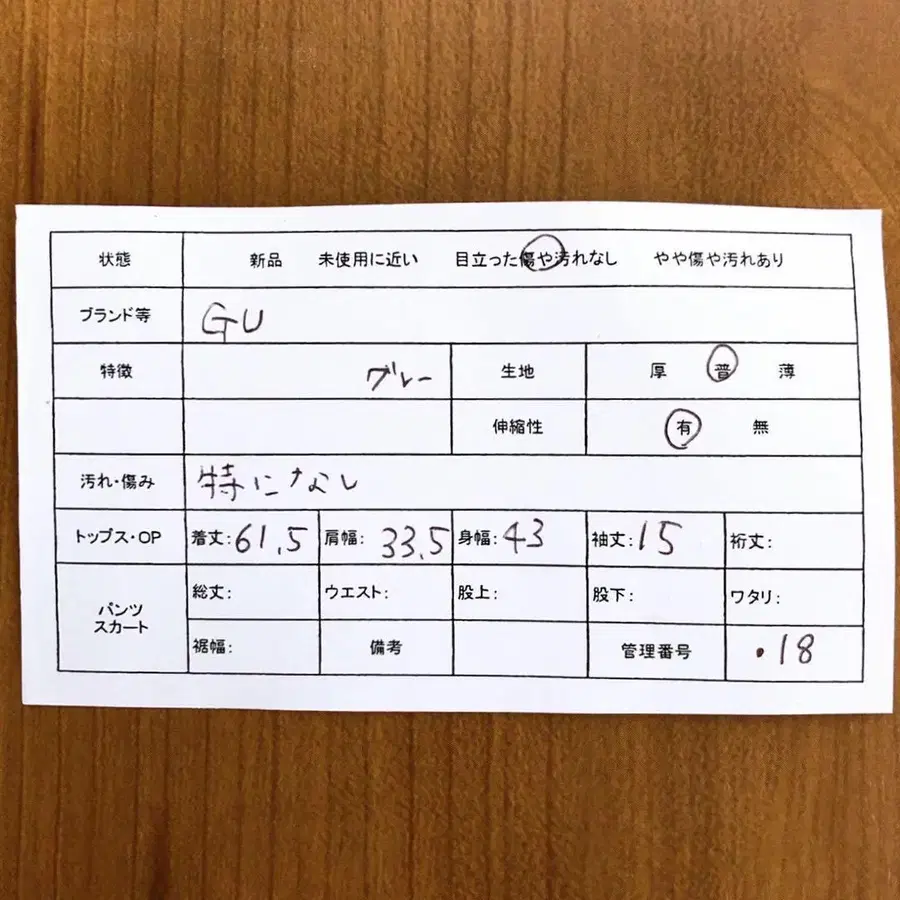 状態 新品 未使用に近い 目立った傷や汚れなし やや傷や汚れあり
ブランド等 GU
特徴 グレー 生地 厚 普 薄
伸縮性 有 無
汚れ・傷み 特になし
トップス・OP 着丈:61.5 肩幅:33.5 身幅:43 袖丈:15 裄丈:
パンツ スカート 総丈: ウエスト: 股上: 股下: ワタリ:
裾幅: 備考 管理番号 ・18